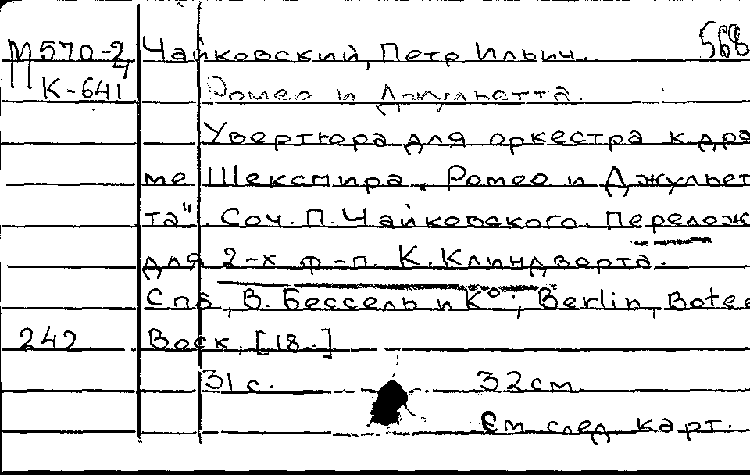 М570-2 Чайковский, Петр Ильич. 568
К-641 Ромео и Джульетта.
Увертюра для оркестра к дра
ме Шекспира „Ромео и Джульет
та". Соч. П. Чайковского. Перелож
для 2-х ф-п. К. Клиндворта.
Спб, В. Бессель и К°; Berlin, Botee
242 Bock, [18..]
31 с. 32 см
См след карт.